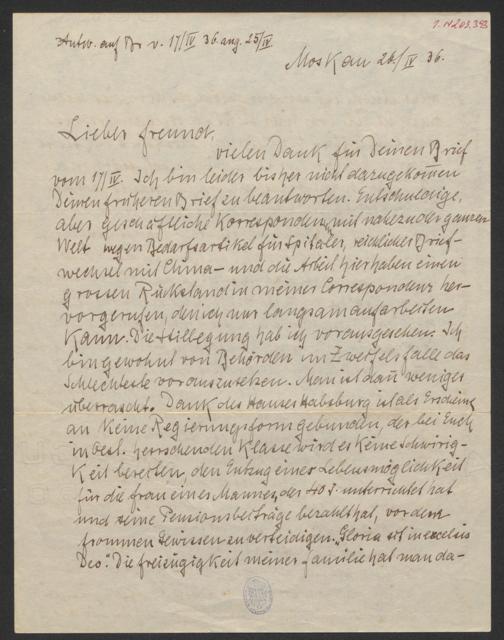 1.N.203.38
Antw. auf Br v. 17/IV 36 ang. 25/IV
Moskau 26/IV 36.
Lieber Freund,
vielen Dank für Deinen Brief
vom 17/IV. Ich bin leider bisher nicht dazugekommen
Deinen früheren Brief zu beantworten. Entschuldige,
aber geschäftliche Korrespondenz mit nahezu der ganzen
Welt wegen Bedarfsartikel für Spitäler, reichlicher Brief-
wechsel mit China – und die Arbeit hier haben einen
grossen Rückstand in meiner Correspondenz her-
vorgerufen, den ich nur langsam aufarbeiten
kann. Die Stillegung hab ich vorausgesehen. Ich
bin gewohnt von Behörden im Zweifelsfalle das
Schlechteste vorauszusetzen. Man ist dann weniger
überrascht. Dank des Hauses Habsburg ist als Erscheing
an keine Regierungsform gebunden, der bei Euch
in Oest. herrschenden Klasse wird es keine Schwirig-
keit bereiten, den Entzug einer Lebensmöglichkeit
für die Frau eines Mannes, der 40 J. unterrichtet hat
und seine Pensionsbeiträge bezahlt hat, vor dem
frommen Gewissen zu verteidigen. „Gloria sit in excelsis
Deo." Die Freizügigkeit meiner Familie hat man da-